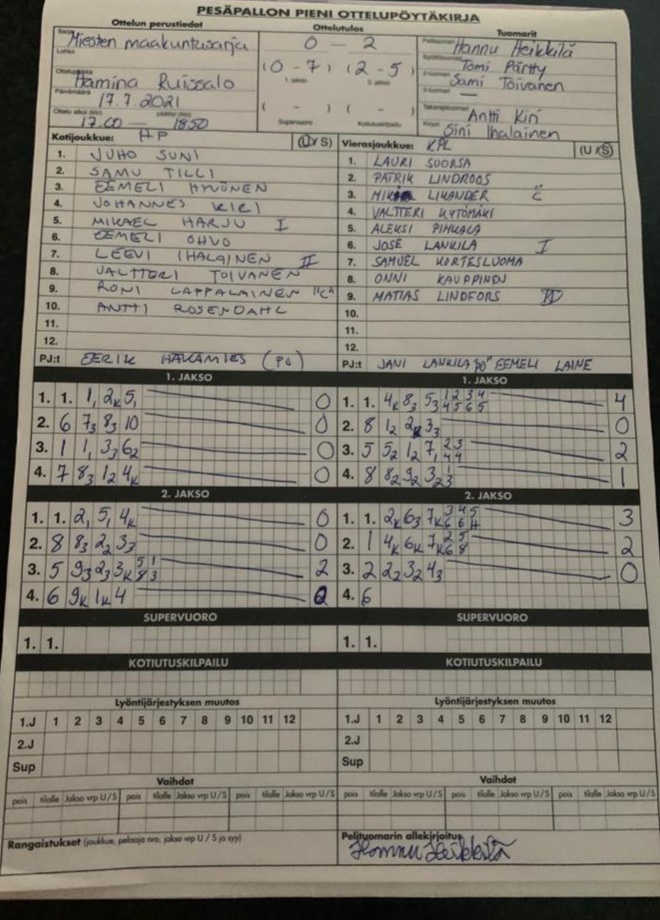 PESÄPALLON PIENI OTTELUPÖYTÄKIRJA
Ottelun perustiedot Ottelutulos Tuomarit
Sarja Miesten maakuntasarja 0 - 2 Pelituomari Hannu Heikkilä
Lohko (0 - 7) (2 - 5) Syöttötuomari Tomi Pärtty
Ottelupaikka Hamina Ruissalo 1. jakso 2. jakso 2-tuomari Sami Toivanen
Päivämäärä 17.7.2021 3-tuomari —
Ottelu alkoi (klo) päättyi (klo) ( - ) ( - ) Takarajatuomari Antti Kiri
17.00 — 1850 Supervuoro Kotiutuskilpailu Kirjuri Sini Ihalainen
Kotijoukkue: HP (U/S) Vierasjoukkue: KPL (U/S)
1. JUHO SUNI 1. LAURI SUORSA
2. SAMU TILLI 2. PATRIK LINDROOS
3. EEMELI HYVÖNEN 3. LIKANDER C
4. JOHANNES KIRI 4. VALTTERI KYTÖMÄKI
5. MIKAEL HARJU I 5. ALEKSI PIHKALA
6. EEMELI OHVO 6. JOSE LANKILA I
7. LEEVI IHALAINEN II 7. SAMUEL KORTESLUOMA
8. VALTTERI TOIVANEN 8. ONNI KAUPPINEN
9. RONI LAPPALAINEN "C" 9. MATIAS LINDFORS
10. ANTTI ROSENDAHL 10.
11. 11.
12. 12.
PJ:t EERIK HAKAMIES (PG) PJ:t JANI LANKILA EEMELI LAINE
1. JAKSO 1. JAKSO
1. 1. 1, 2K 5, 0 1. 1. 4K 8 5 4
2. 6 73 83 10 0 2. 8 12 33 0
3. 1 1, 33 62 0 3. 5 52 12 7, 2
4. 7 83 12 4K 0 4. 8 82 92 32 1
2. JAKSO 2. JAKSO
1. 1. 2, 5, 4K 0 1. 1. 2K 63 7K 3
2. 8 83 22 33 0 2. 1 4K 6K 7K 2
3. 5 93 23 3K 2 3. 2 22 32 43 0
4. 6 9K 1K 4 4. 6
SUPERVUORO SUPERVUORO
1. 1. 1. 1.
KOTIUTUSKILPAILU KOTIUTUSKILPAILU
Lyöntijärjestyksen muutos Lyöntijärjestyksen muutos
1.J 1 2 3 4 5 6 7 8 9 10 11 12 1.J 1 2 3 4 5 6 7 8 9 10 11 12
2.J 2.J
Sup Sup
Vaihdot Vaihdot
pois tilalle Jakso vrp U/S pois tilalle Jakso vrp U/S pois tilalle Jakso vrp U/S pois tilalle Jakso vrp U/S pois tilalle Jakso vrp U/S pois tilalle Jakso vrp U/S
Rangaistukset (joukkue, pelaaja nro, jakso vrp U / S ja syy) Pelituomarin allekirjoitus
Hannu Heikkilä